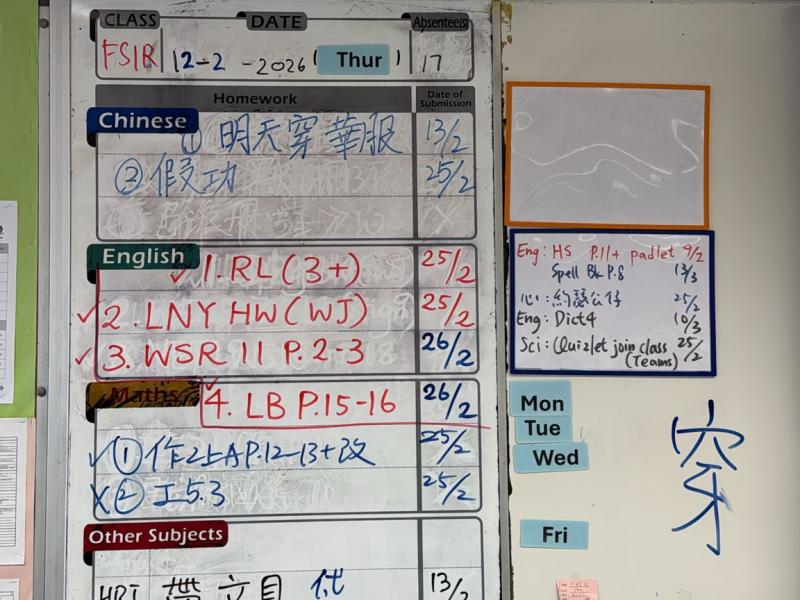 CLASS DATE Absentee(s)
FS1R 12-2-2026 ( Thur ) 17
Homework Date of Submission
Chinese
① 明天穿華服 13/2
② 假功 25/2
English
✓ 1. RL (3+) 25/2
✓ 2. LNY HW (WJ) 25/2
✓ 3. WSR 11 P.2-3 26/2
Maths
4. LB P.15-16 26/2
✓ ① 作2上A P.12-13+改 25/2
X ② 工5.3 25/2
Other Subjects
13/2
Eng: HS P.11+ padlet 9/2
Spell Bk P.8 13/3
25/2
Eng: Dict4 10/3
Sci: Quizlet join class 25/2
(Teams)
Mon
Tue
Wed
Fri
穿